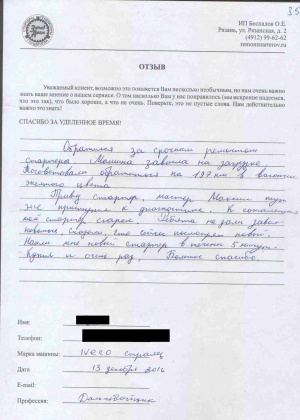 35
ИП Беспалов О.Е.
Рязань, ул. Рязанская, д. 2
(4912) 99-62-62
remontstarterov.ru
ОТЗЫВ
Уважаемый клиент, возможно это покажется Вам несколько необычным, но нам очень важно
знать ваше мнение о нашем сервисе. О том насколько Вам у нас понравилось (мы искренне надеемся,
что это так), что было хорошо, а что не очень. Поверьте, это не пустые слова. Нам действительно
важно это знать!
СПАСИБО ЗА УДЕЛЕННОЕ ВРЕМЯ!
Обратился за срочным ремонтом
стартера. Машина зависла на загрузке
Посоветовали обратиться на 197 км в
желтого цвета
Привез стартер, мастер Максим тут
же приступил к диагностике. К сожалению
мой стартер сгорел. Ребята не дали
новый.
Нашли мне новый стартер в течени 5 минут.
Купил и очень рад. Большое спасибо.
Имя:
Телефон:
Марка машины: IVECO Стралис
Дата 13 декабря 2016
E-mail:
Профессия: Дальнобойщик